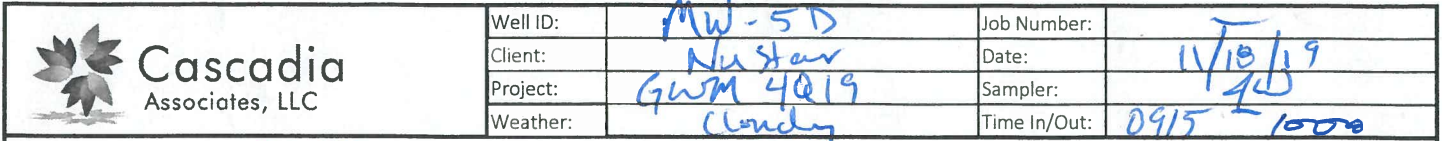 Cascadia
Associates, LLC
Well ID: MW-5D Job Number: —
Client: NuStar Date: 11/18/19
Project: GWM 4Q19 Sampler:
Weather: Cloudy Time In/Out: 0915 1000